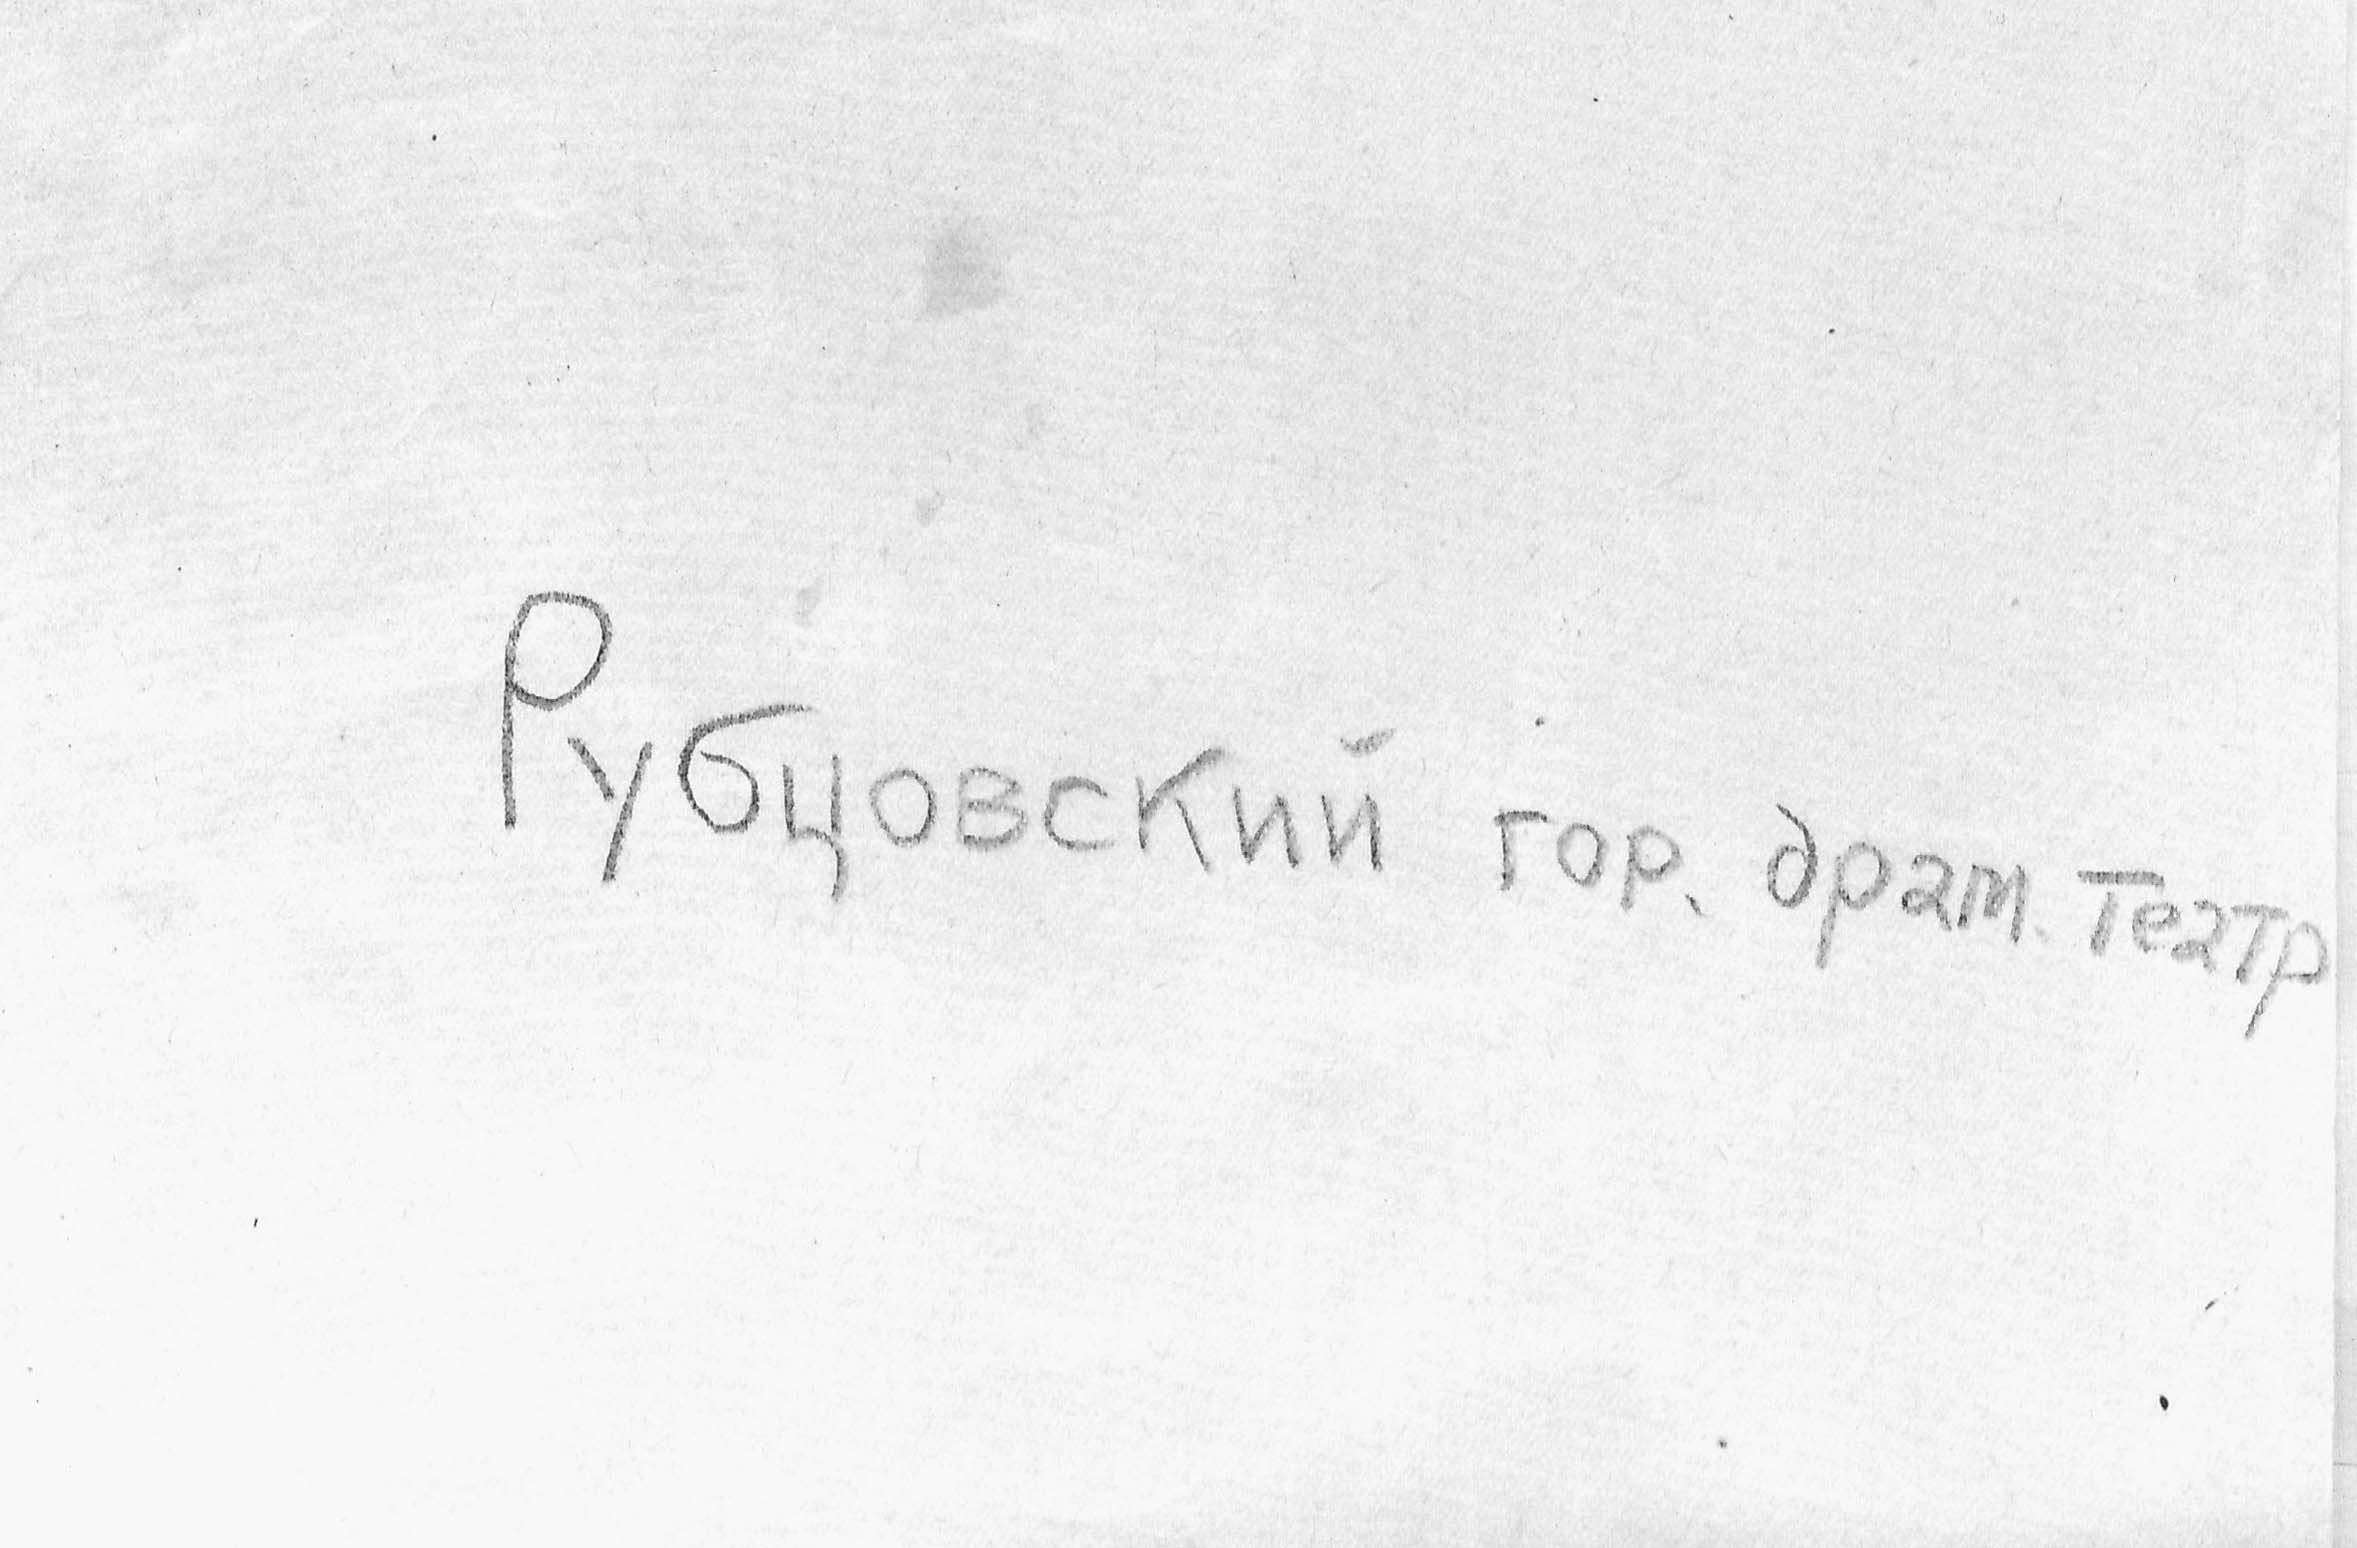 Рубцовский гор. драм. театр